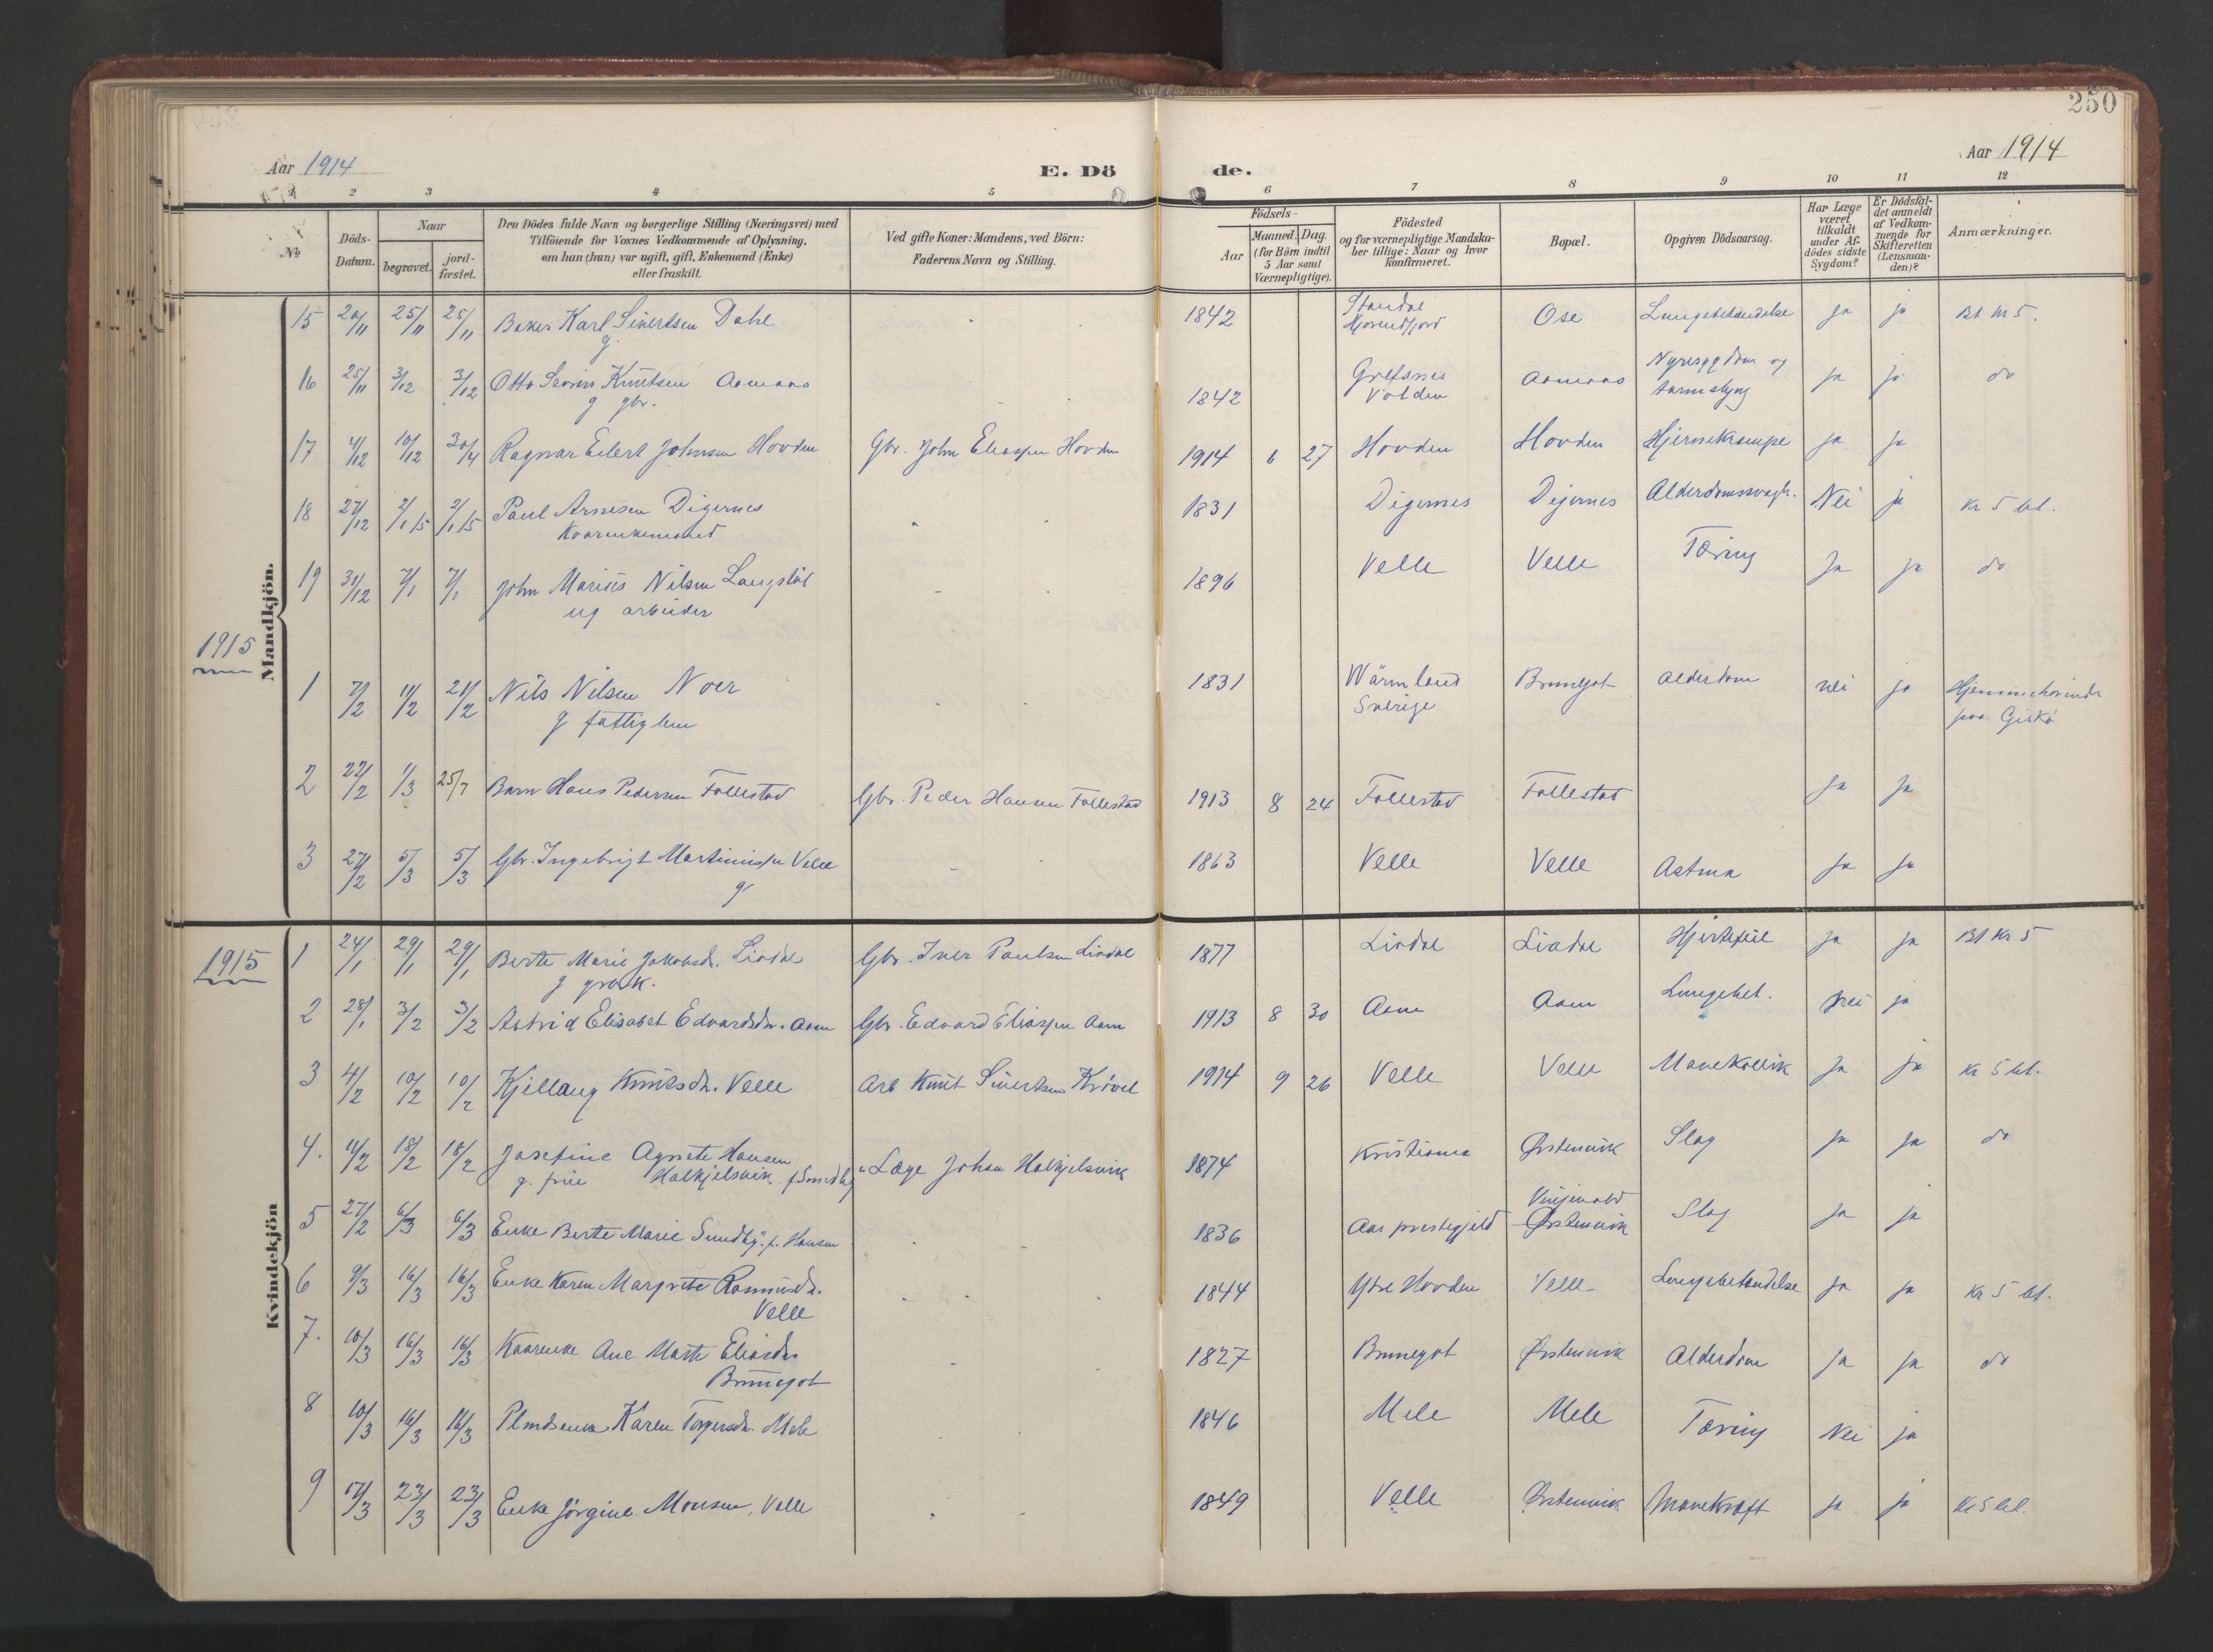 250
Aar 1914
E. Dö
de.
Aar 1914
1 2 3 4 5 6 7 8 9 10 11 12
№
Döds-Datum.
Naar
begravet.
jord-fæstet.
Den Dödes fulde Navn og borgerlige Stilling (Næringsvei) med
Tilföiende for Voxnes Vedkommende af Oplysning,
om han (hun) var ugift, gift, Enkemand (Enke)
eller fraskilt.
Ved gifte Koner: Mandens, ved Börn:
Faderens Navn og Stilling.
Födsels-
Aar
Maaned. Dag.
(for Börn indtil
5 Aar samt
Værnepligtige).
Födested
og for værnepligtige Mandska-
ber tillige: Naar og hvor
konfirmeret.
Bopæl.
Opgiven Dödsaarsag.
Har Læge
været
tilkaldt
under Af-
dödes sidste
Sygdom?
Er Dödsfal-
det anmeldt
af Vedkom-
mende for
Skifteretten
(Lensman-
den)?
Anmærkninger.
Mandkjön.
15 20/11 25/11 25/11 Baker Karl Sivertsen Dahl 1842 Standal Ose Lungebetændelse ja ja Bt kr 5.
g Hjorundfjord
16 25/11 3/12 3/12 Otto Severin Knutsen Aamaas 1842 Grefsnes Aamaas Nyresygdom og ja ja do
g gbr. Volden tarmslyng
17 4/12 10/12 30/4 Ragnar Eilert Johnsen Hovden Gbr. John Eliassen Hovden 1914 6 27 Hovden Hovden Hjernekrampe ja ja
18 27/12 2/1 15 2/1 15 Paul Arnesen Digernes 1831 Digernes Digernes Alderdomssvagh. Nei ja Kr 5 bt.
Kaarenkemand
19 31/12 7/1 7/1 John Marius Nilsen Langstöl 1896 Velle Velle Tæring Ja ja do
ug arbeider
1915
1 7/2 11/2 21/2 Nils Nilsen Noer 1831 Wärmland Brunegot Alderdom nei ja
g fattiglem Sverige paa Giskö
2 22/2 1/3 25/7 Barn Hans Pedersen Follestad Gbr. Peder Hansen Follestad 1913 8 24 Follestad Follestad Ja Ja
3 27/2 5/3 5/3 Gbr. Ingebrigt Martinussen Velle 1863 Velle Velle Astma Ja Ja
g
Kvindekjön
1915
1 24/1 29/1 29/1 Berte Marie Jakobsdr. Liadal Gbr. Iver Paulsen Liadal 1877 Liadal Liadal Hjertefeil ja ja Bt Kr 5
g gbrk.
2 28/1 3/2 3/2 Astrid Elisabet Edvardsdr. Aam Gbr. Edvard Eliassen Aam 1913 8 30 Aam Aam Lungebet. Nei ja
3 4/2 10/2 10/2 Kjellaug Knutsdr. Velle Arb Knut Sivertsen Krövel 1914 9 26 Velle Velle Mavekollik Ja ja Kr 5 bt.
4. 11/2 18/2 18/2 Josefine Agnete Hansen Læge Johan Halkjelsvik 1874 Kristiania Ørstenvik Slag ja ja do
g. frue Halkjelsvik f Sundby
5 27/2 6/3 6/3 Enke Berte Marie Sundby f. Hansen 1836 Aas prestegjeld Ørstenvik Slag Ja ja
6 9/3 16/3 16/3 Enke Karen Margrete Rasmusdr. 1844 Ytre Hovden Velle Lungebetændelse ja ja Kr 5 bt.
Velle
7. 10/3 16/3 16/3 Kaarenke Ane Marte Eliasdr. 1827 Brunegot Ørstenvik Alderdom ja ja do
Brunegot
8 10/3 16/3 16/3 Plmdsenke Karen Torgersdr. Mele 1846 Mele Mele Tæring Nei ja
9 17/3 23/3 23/3 Enke Jörgine Monsen, Velle 1849 Velle Ørstenvik Mavekræft ja ja Kr 5 bt.